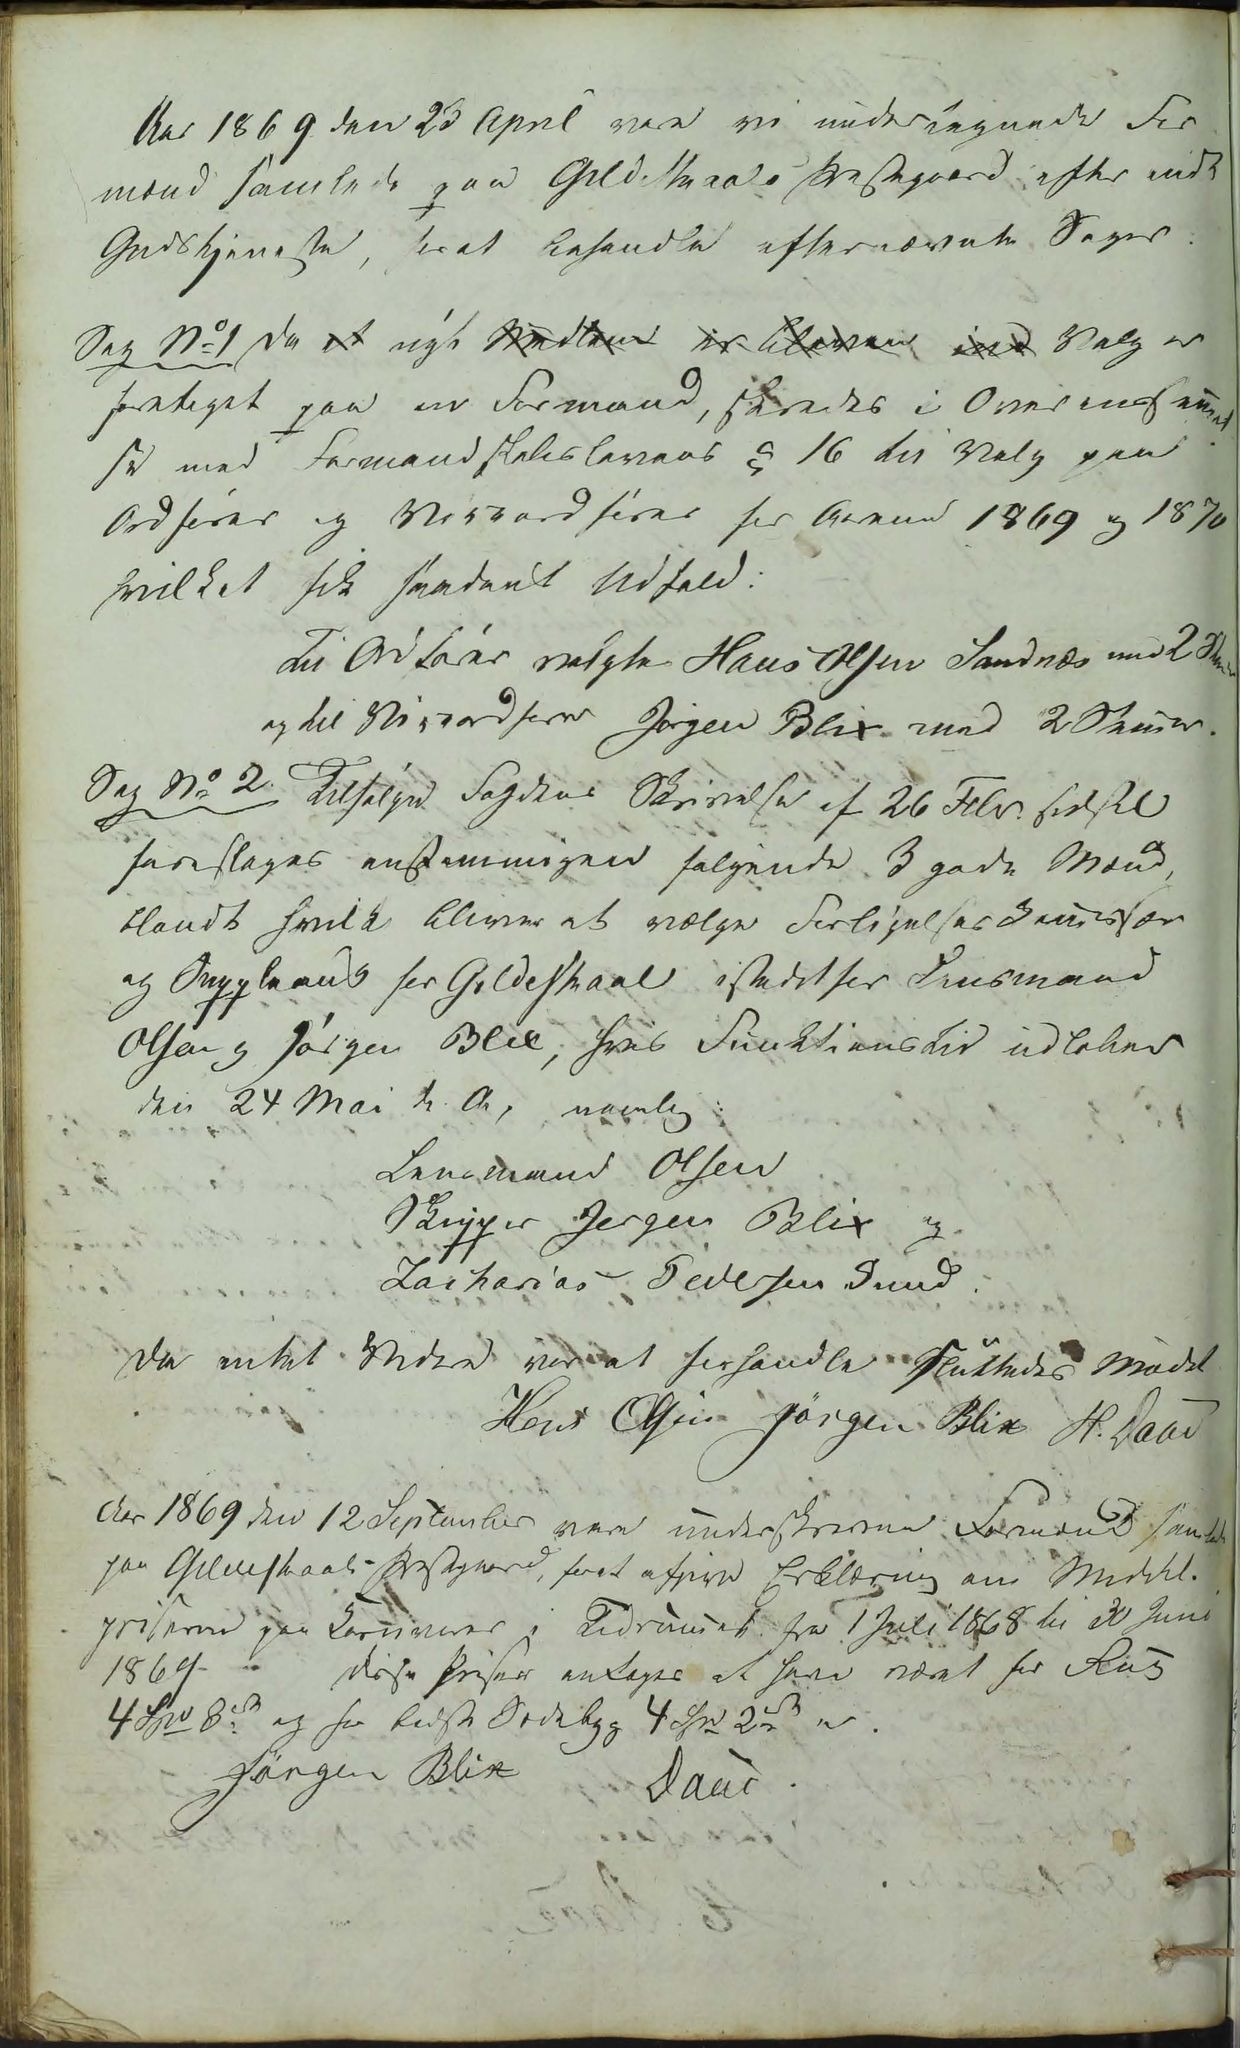 Aar 1869 den 23 April vare vi undertegnede For
mænd samlede paa Gildeskaals Prestegaard efter endt
Gudstjeneste, forat behandle efternævnte Sager.
Sag No 1 Da et nyt Medlem er bleven ind Valg er
foretaget paa en Formand, skredes i Overensstemmel
se med Formandskabslovens § 16 til Valg paa
Ordfører og Viceordfører for Aarene 1869 og 1870
hvilket fik saadant Udfald:
Til Ordfører valgtes Hans Olsen Sandnæs med 2 Stemmer
og til Viceordfører Jørgen Blix med 2 Stemmer.
Sag No 2. Tilfølge Fogdens Skrivelse af 26 Febr. sidstl
foreslages enstemmigen følgende 3 gode Mænd,
blandt hvilke bliver at vælge Forligelseskommissær
og Suppleant for Gildeskaal istedetfor Lensmand
Olsen og Jørgen Blix, hvis Funktionstid udløber
den 24 Mai d. A, nemlig:
Lensmand Olsen
Skipper Jørgen Blix og
Zacharias Pedersen Sund.
Da intet Videre var at forhandle sluttedes Mødet
Hans Olsen Jørgen Blix H. Daae
Aar 1869 den 12 September vare underskrevne Formænd samlede
paa Gildeskaals Prestegaard, forat afgive Erklæring om Middel-
priserne paa Kornvarer i Tidrummet fra 1 Juli 1868 til 30 Juni
1869. Disse Priser antages at have været for Rug
4 Spd 8 s og for bedste Sædebyg 4 Spd 2
Jørgen Blix Daae.